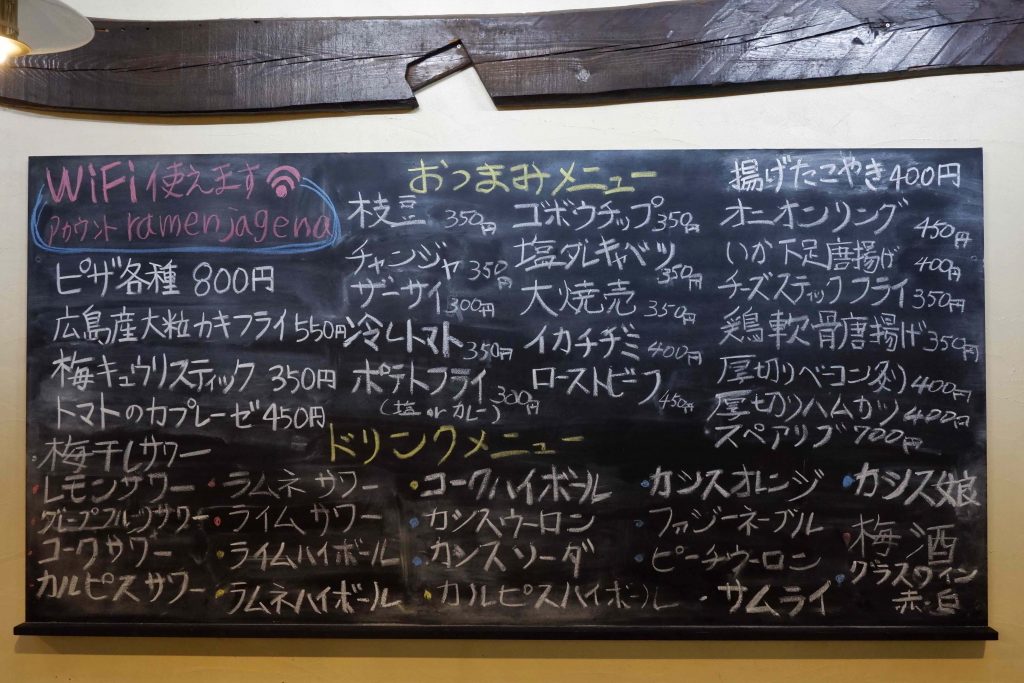 WiFi 使えます
アカウント ramenjagena
ピザ各種 800円
広島産大粒カキフライ 550円
梅キュウリスティック 350円
トマトのカプレーゼ 450円
おつまみメニュー
枝豆 350円
チャンジャ 350円
ザーサイ 300円
冷しトマト 350円
ポテトフライ 300円
(塩 or カレー)
ゴボウチップ 350円
塩ダレキャベツ 350円
大焼売 350円
イカチヂミ 400円
ローストビーフ 450円
揚げたこやき 400円
オニオンリング 450円
いか下足唐揚げ 400円
チーズスティックフライ 350円
鶏軟骨唐揚げ 350円
厚切りベーコン炙り 400円
厚切りハムカツ 400円
スペアリブ 700円
ドリンクメニュー
梅干しサワー
レモンサワー
グレープフルーツサワー
コークサワー
カルピスサワー
ラムネサワー
ライムサワー
ライムハイボール
ラムネハイボール
コークハイボール
カシスウーロン
カシスソーダ
カルピスハイボール
カシスオレンジ
ファジーネーブル
ピーチウーロン
サムライ
カシス娘
梅酒
グラスワイン
赤・白